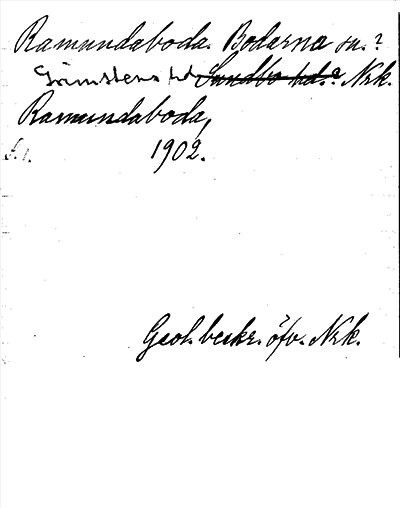 Ramundaboda. Bodarna sn.?
Grimstens hd. Sundbo hd.? Nrk.
Ramundaboda,
1902.
Geol. beskr. öfv. Nrk.